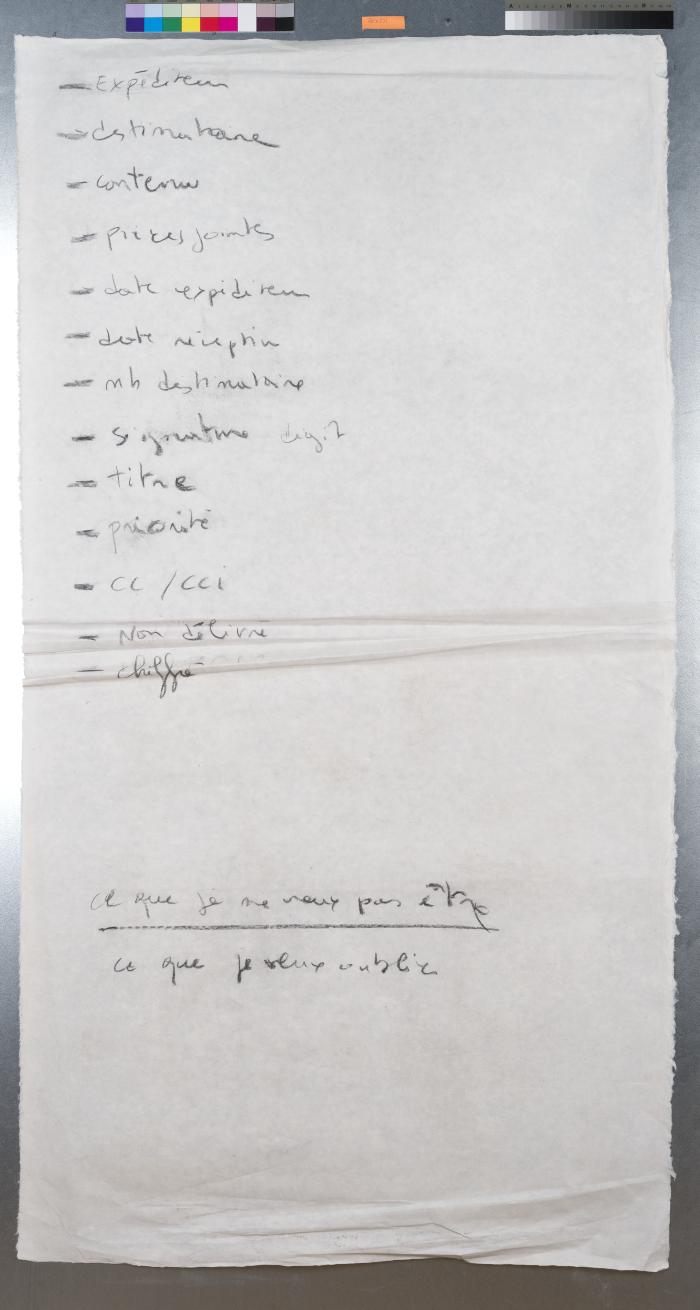 - Expéditeur
- destinataire
- contenu
- pièces jointes
- date expéditeur
- date réception
- nb destinataire
- signature digit
- titre
- priorité
- CC / CCi
- Non délivré
- chiffré
ce que je ne veux pas être
ce que je veux oublier